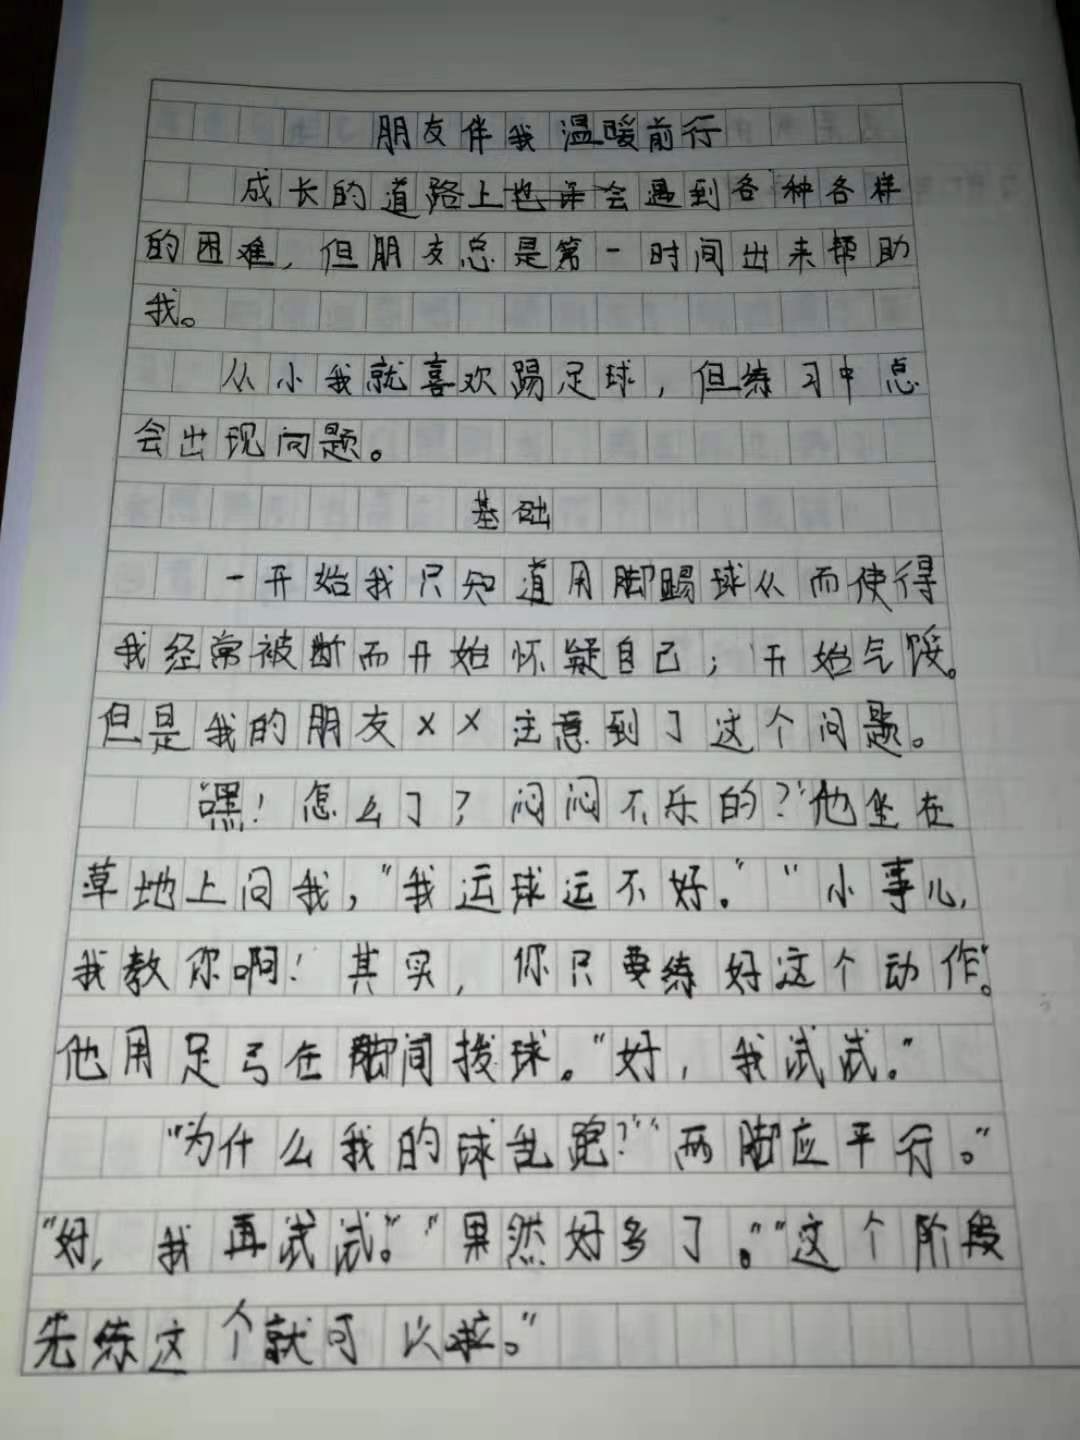 朋友伴我温暖前行
成长的道路上会遇到各种各样
的困难，但朋友总是第一时间出来帮助
我。
从小我就喜欢踢足球，但练习中总
会出现问题。
基础
一开始我只知道用脚踢球从而使得
我经常被断而开始怀疑自己；开始气馁。
但是我的朋友××注意到了这个问题。
“嘿！怎么了？闷闷不乐的？”他坐在
草地上问我，“我运球运不好。”“小事儿，
我教你啊！其实，你只要练好这个动作。”
他用足弓在脚间拨球。“好，我试试。”
“为什么我的球乱跑？”“两脚应平行。”
“好，我再试试。”“果然好多了。”“这个阶段
先练这个就可以啦。”